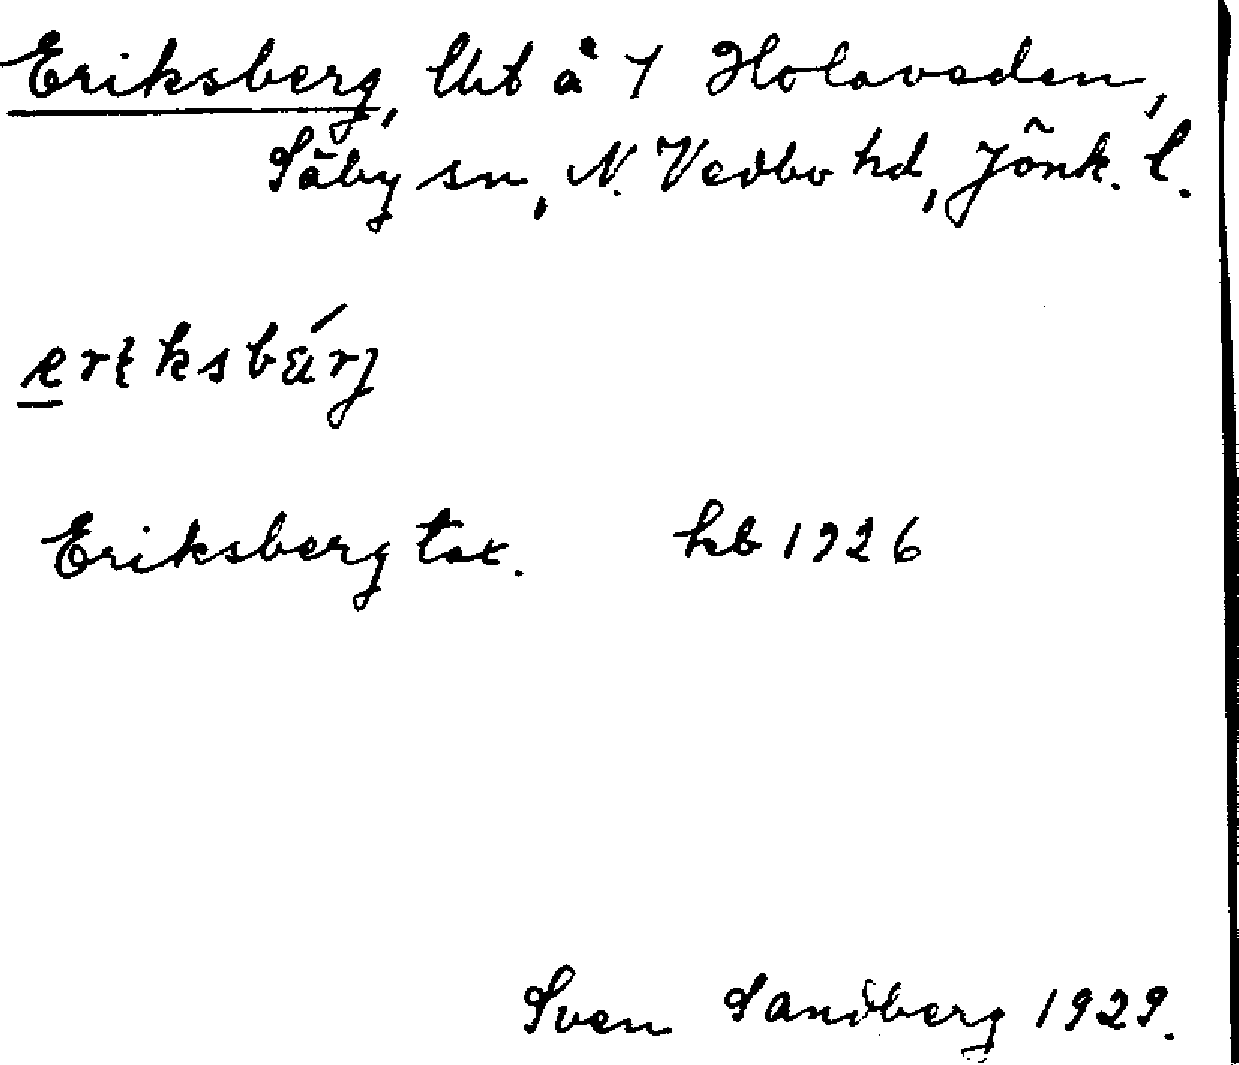 Eriksberg, lht å 1 Holaveden,
Säby sn, N. Vedbo hd, Jönk. l.
Eriksberg tax. hb 1926
Sven Sandberg 1929.